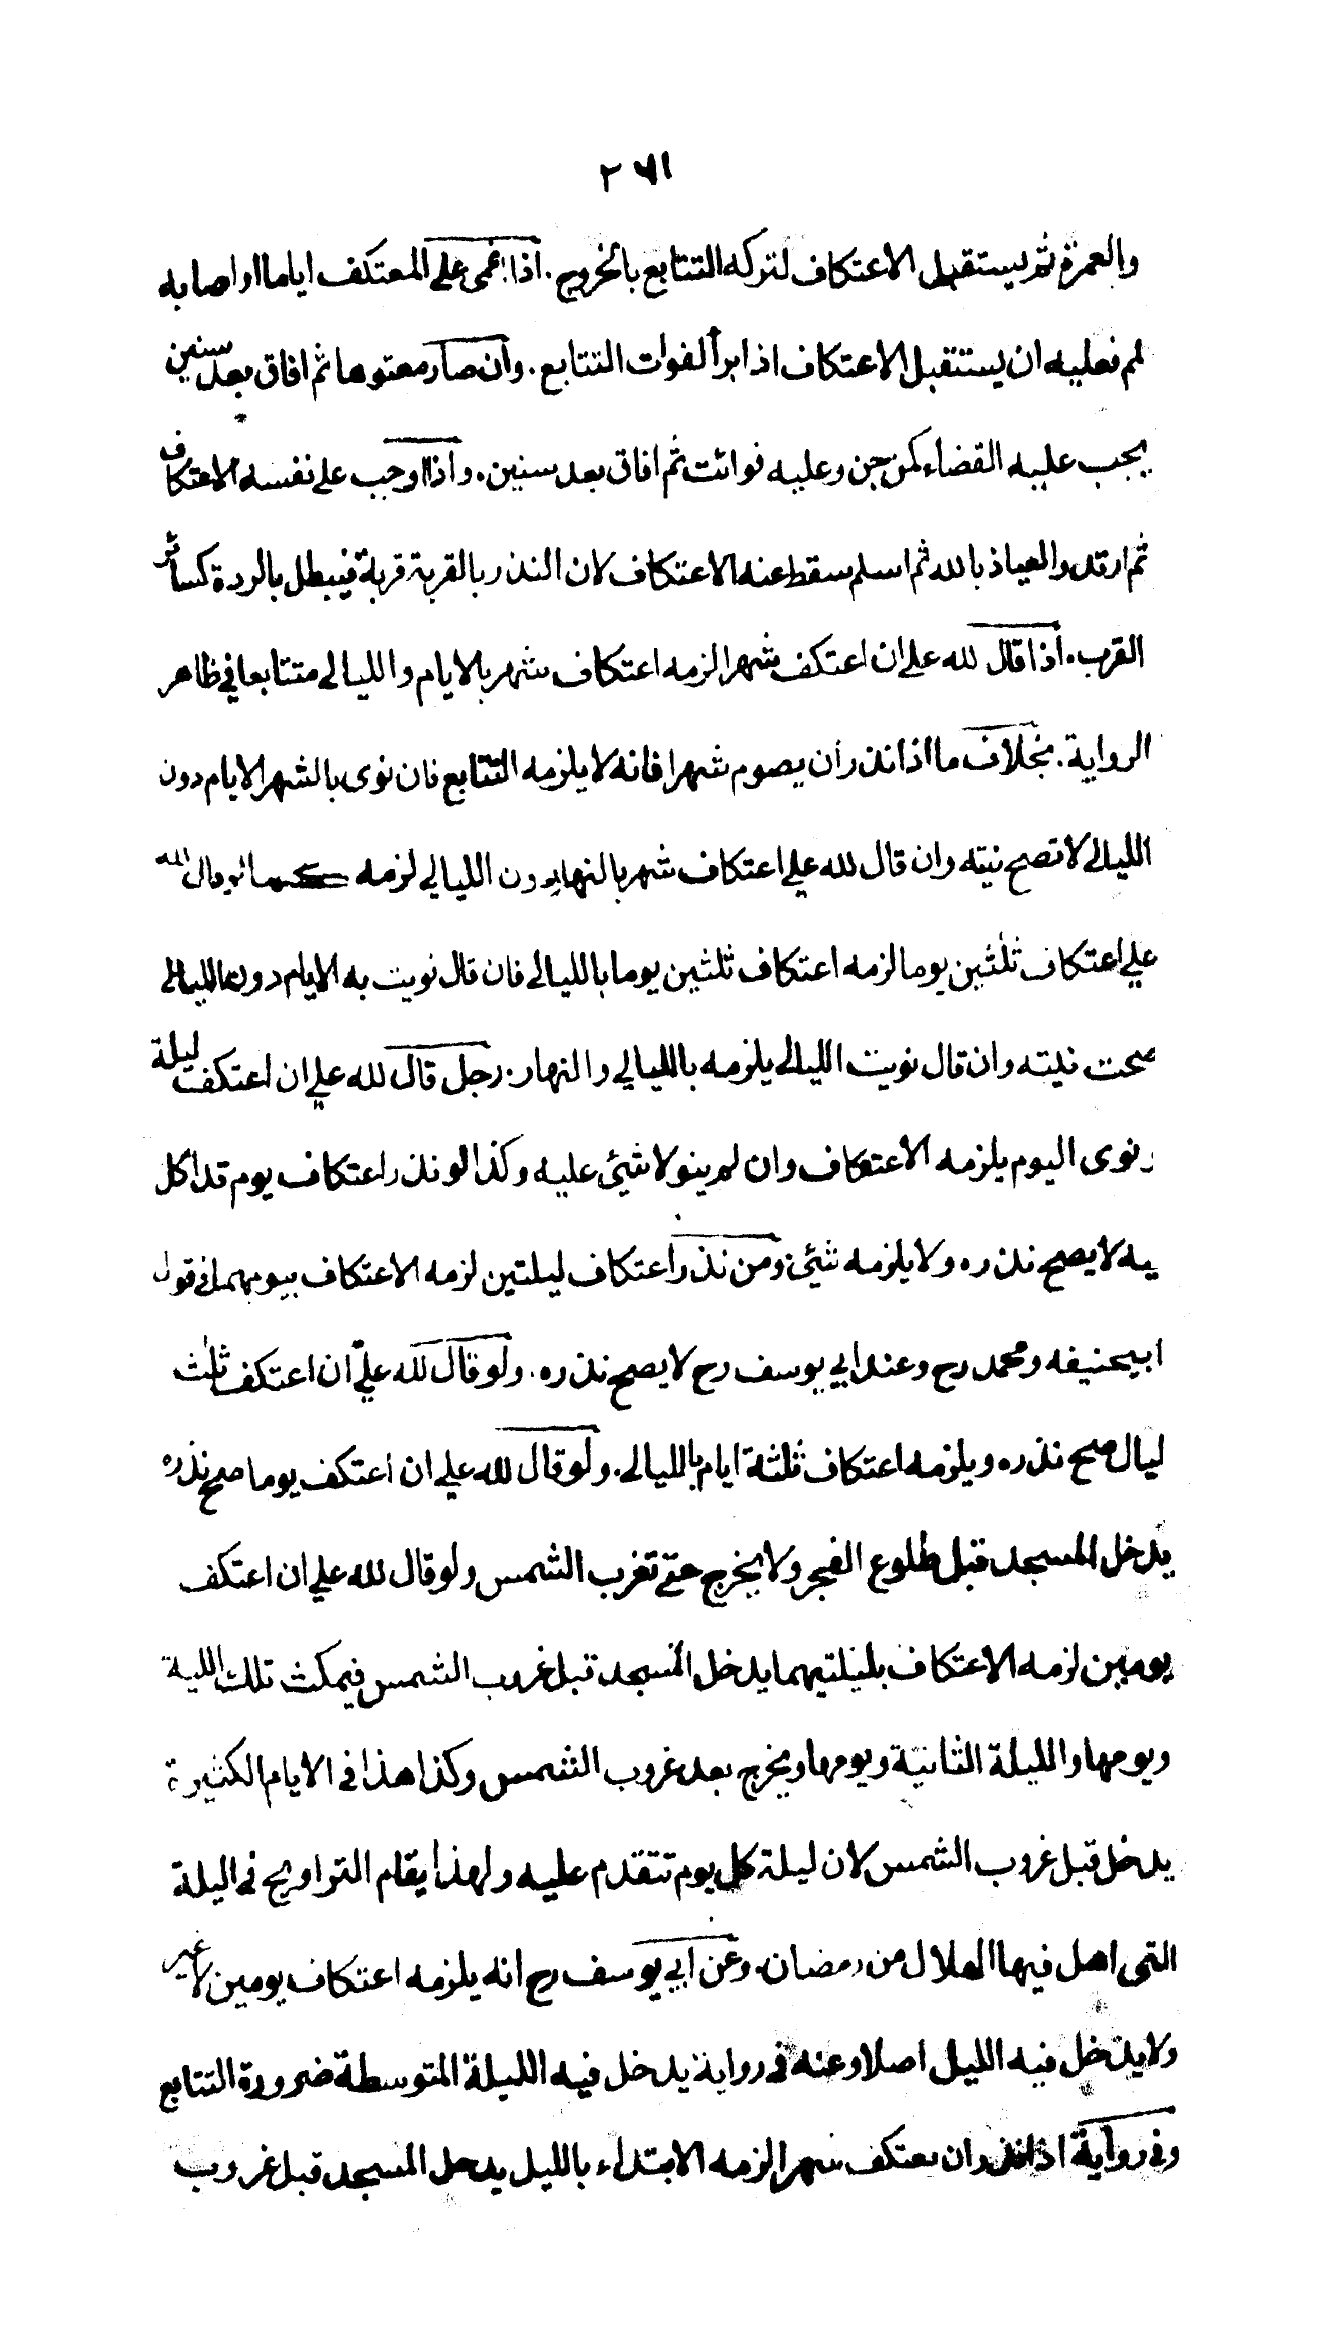 ٢٧١
والعمرة ثم يستقبل الاعتكاف لتركه التتابع بالخروج. اذا اغمى على المعتكف اياما او اصابه
لم فعليه ان يستقبل الاعتكاف اذا برأ لفوات التتابع. وان صار معتوها ثم افاق بعد سنين
يجب عليه القضاء كمن جن وعليه فوائت ثم افاق بعد سنين. واذا اوجب على نفسه الاعتكاف
ثم ارتد والعياذ بالله ثم اسلم سقط عنه الاعتكاف لان النذر بالقربة قربة فيبطل بالردة كسائر
القرب. اذا قال لله على ان اعتكف شهرا لزمه اعتكاف شهر بالايام والليالى متتابعا في ظاهر
الرواية. بخلاف ما اذا نذر أن يصوم شهرا فانه لا يلزمه التتابع فان نوى بالشهر الايام دون
الليالى لا تصح نيته وان قال لله على اعتكاف شهر بالنهار دون الليالي لزمه كما قال لله
علي اعتكاف ثلثين يوما لزمه اعتكاف ثلثين يوما بالليالى فان قال نويت به الايام دون الليالى
صحت نيته وان قال نويت الليالى يلزمه بالليالي والنهار. رجل قال لله علي ان اعتكف ليلة
ونوى اليوم يلزمه الاعتكاف وان لم ينو لا شيئ عليه وكذا لو نذر اعتكاف يوم قد اكل
فيه لا يصح نذره ولا يلزمه شيئ. ومن نذر اعتكاف ليلتين لزمه الاعتكاف بيومهما في قول
ابيحنيفه ومحمد رح وعند ابي يوسف رح لا يصح نذره. ولو قال لله عليّ ان اعتكف ثلث
ليال صح نذره ويلزمه اعتكاف ثلثة ايام بالليالى. ولو قال لله علي ان اعتكف يوما صح نذره
يدخل المسجد قبل طلوع الفجر ولا يخرج حتى تغرب الشمس ولو قال لله علي ان اعتكف
يومين لزمه الاعتكاف بليلتيهما يدخل المسجد قبل غروب الشمس فيمكث تلك الليلة
ويومها والليلة الثانية ويومها ويخرج بعد غروب الشمس وكذا هذا في الايام الكثيرة
يدخل قبل غروب الشمس لان ليلة كل يوم تتقدم عليه ولهذا يقام التراويح في اليلة
التي اهل فيها الهلال من رمضان. وعن ابي يوسف رح انه يلزمه اعتكاف يومين لا غير
ولا يدخل فيه الليل اصلا وعنه في رواية يدخل فيه الليلة المتوسطة ضرورة التتابع
وفي رواية اذا نذر ان يعتكف شهرا لزمه الابتداء بالليل يدخل المسجد قبل غروب